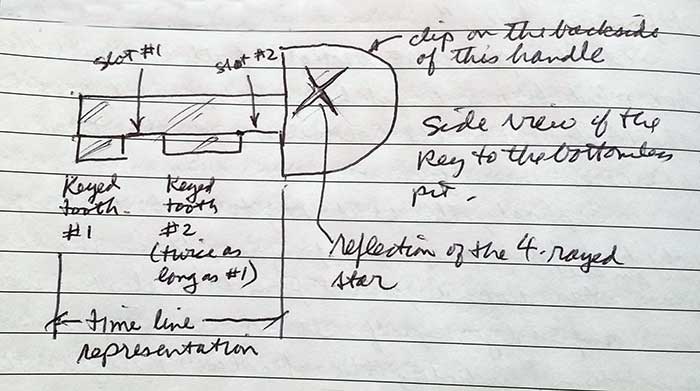 slot #1
slot #2
clip on the backside
of this handle
Side view of the
key to the bottomless
pit.
Keyed
tooth
#1
Keyed
tooth
#2
(twice as
long as #1)
reflection of the 4-rayed
star
time line
representation